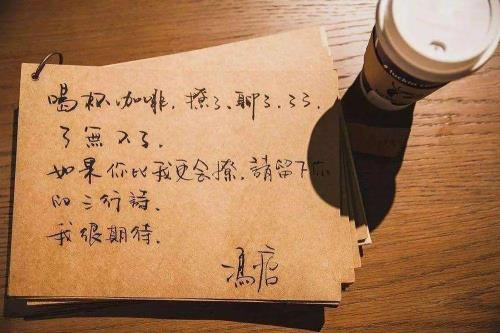 喝杯咖啡,撩了、聊了、了了,
了無不了。
如果你比我更会撩,請留下你
的三行詩。
我很期待。
馮唐
luckin